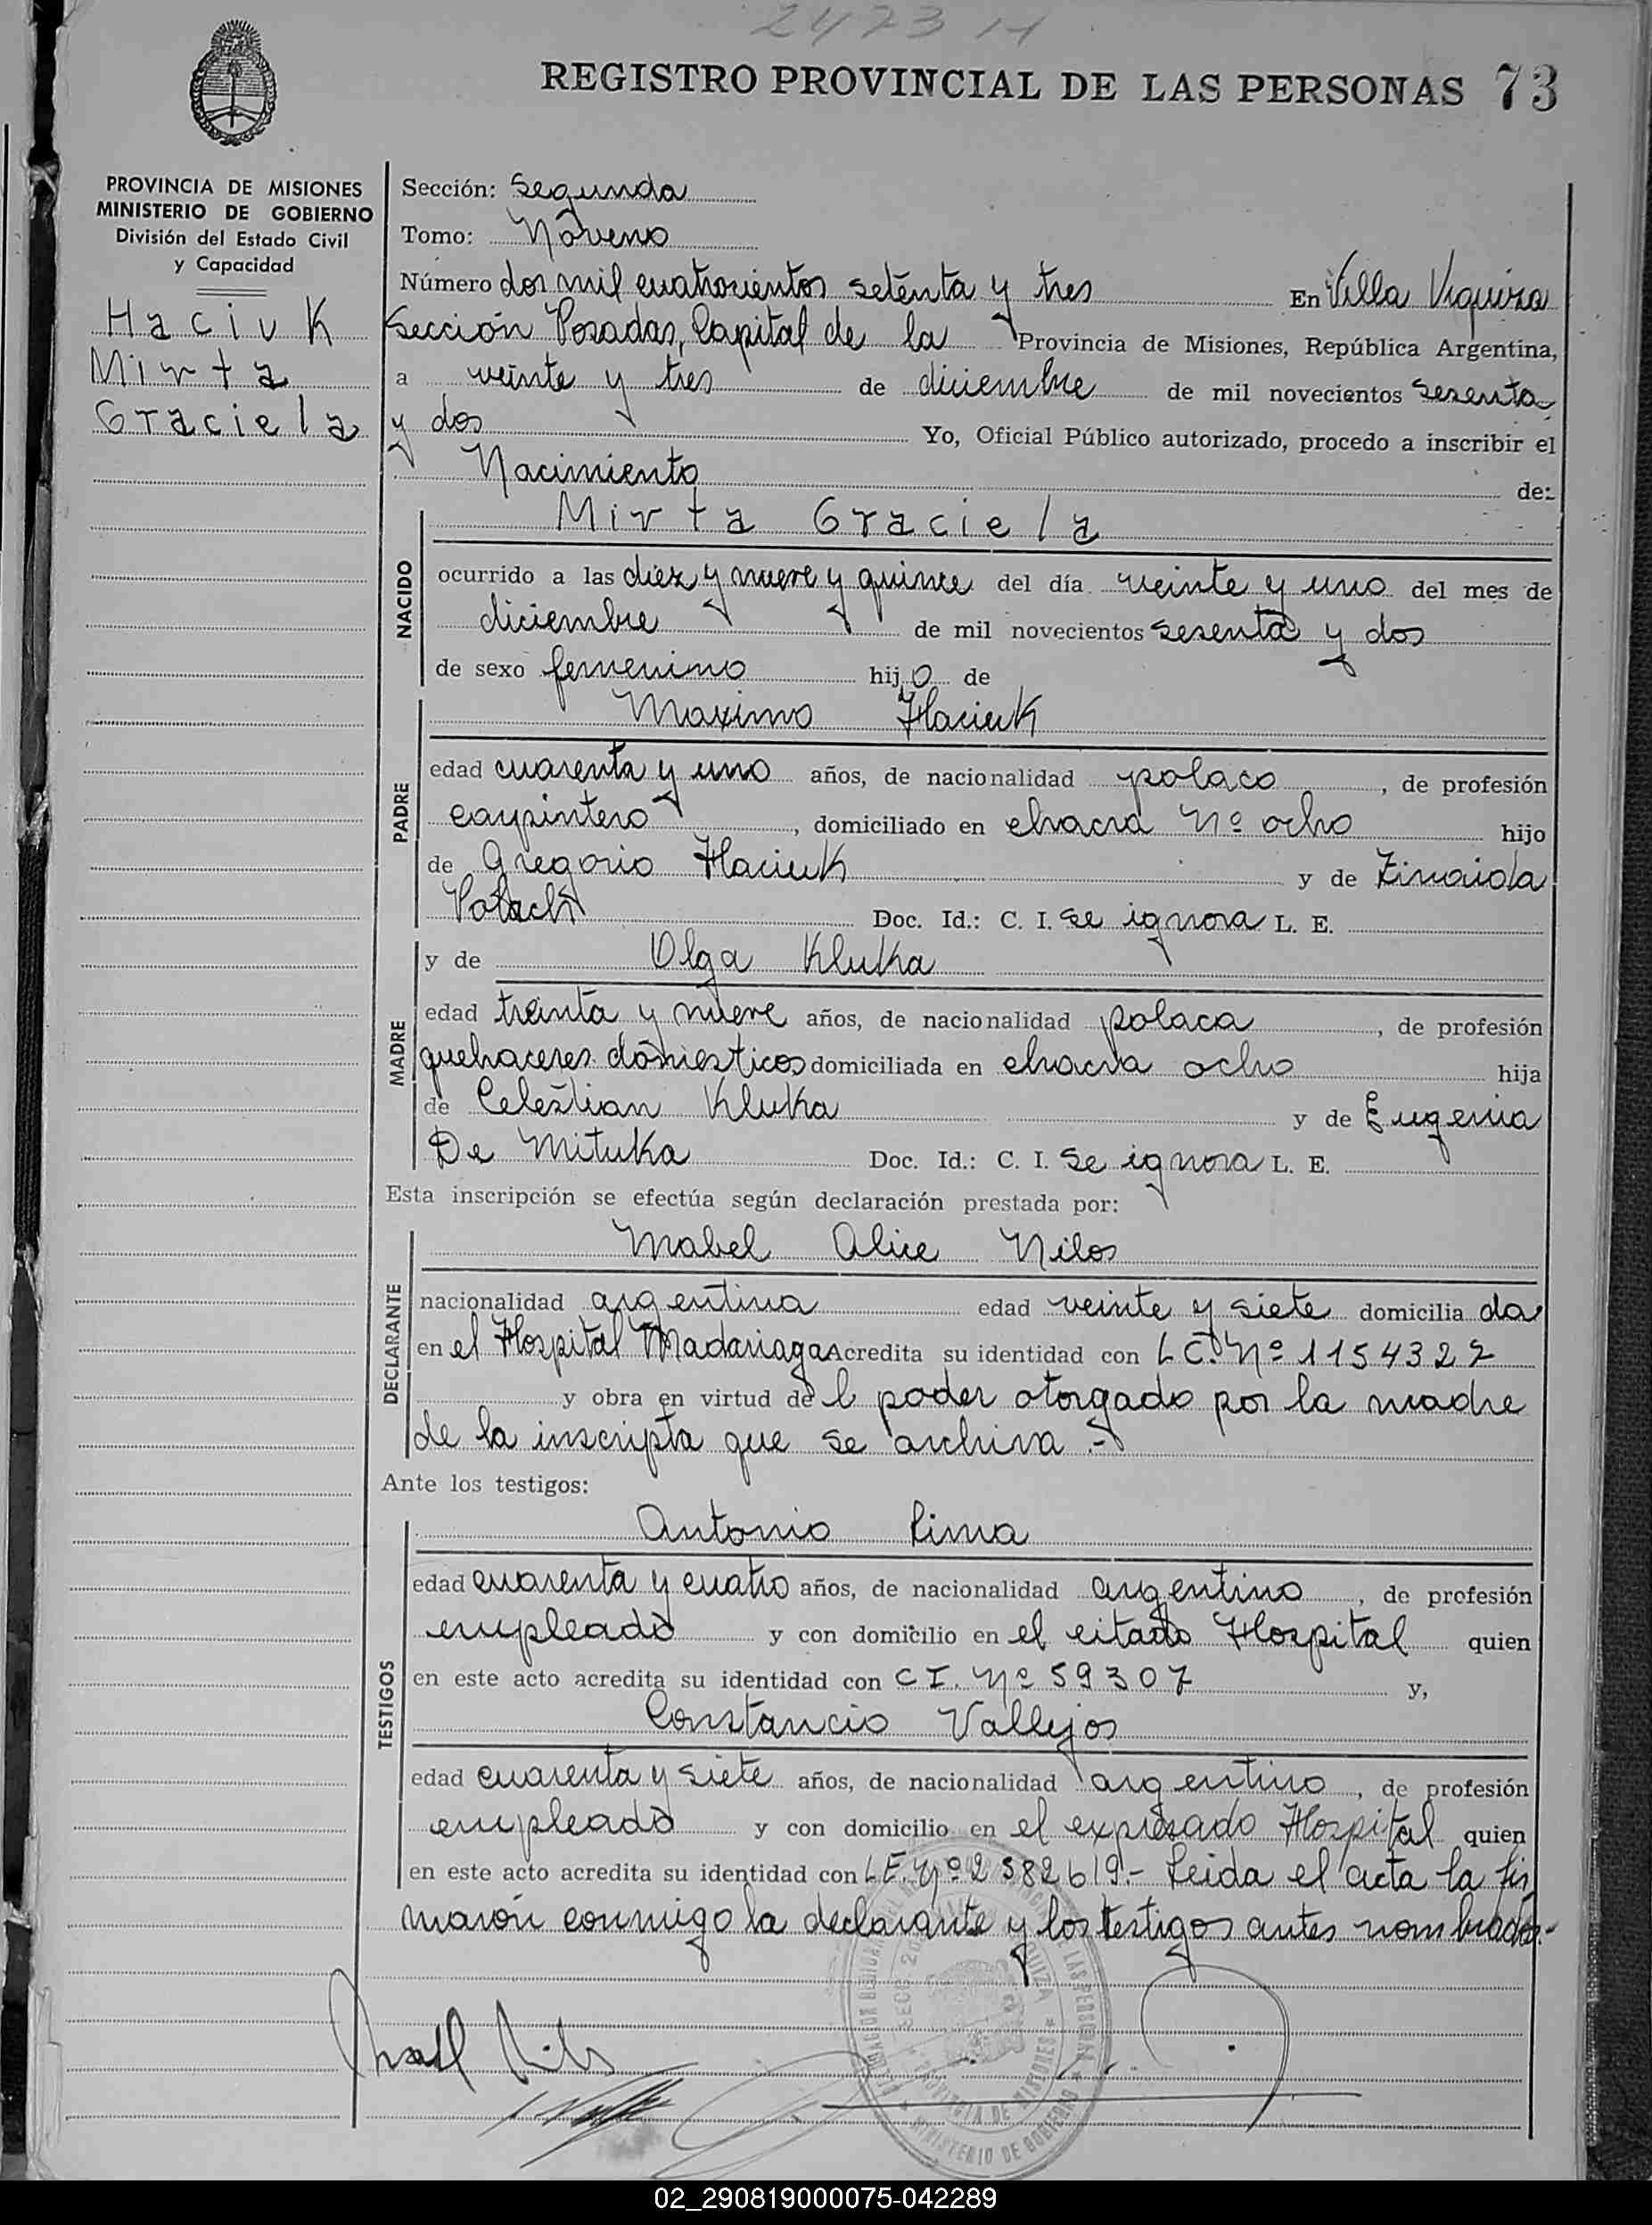 2473 H
REGISTRO PROVINCIAL DE LAS PERSONAS 73
PROVINCIA DE MISIONES
MINISTERIO DE GOBIERNO
División del Estado Civil
y Capacidad
Haciuk
Mirta
Graciela
Sección: Segunda
Tomo: Noveno
Número dos mil cuatrocientos setenta y tres En Villa Urquiza
Sección Posadas, Capital de la Provincia de Misiones, República Argentina,
a veinte y tres de diciembre de mil novecientos sesenta
y dos Yo, Oficial Público autorizado, procedo a inscribir el
Nacimiento de:
Mirta Graciela
NACIDO
ocurrido a las diez y nueve y quince del día veinte y uno del mes de
diciembre de mil novecientos sesenta y dos
de sexo femenino hijo de
Maximo Haciuk
PADRE
edad cuarenta y uno años, de nacionalidad polaco, de profesión
carpintero, domiciliado en chacra Nº ocho hijo
de Gregorio Haciuk y de Zinaida
Doc. Id.: C. I. se ignora L. E.
MADRE
y de Olga Kluka
edad treinta y nueve años, de nacionalidad polaca, de profesión
quehaceres domesticos domiciliada en chacra ocho hija
de Celestian Kluka y de Eugenia
De Mituka Doc. Id.: C. I. Se ignora L. E.
Esta inscripción se efectúa según declaración prestada por:
Mabel Alice Nilos
DECLARANTE
nacionalidad argentina edad veinte y siete domicilia da
en el Hospital Madariaga Acredita su identidad con L C. Nº 1154322
y obra en virtud de l poder otorgado por la madre
de la inscripta que se archiva.-
Ante los testigos:
Antonio Lima
TESTIGOS
edad cuarenta y cuatro años, de nacionalidad argentino, de profesión
empleado y con domicilio en el citado Hospital quien
en este acto acredita su identidad con C I. Nº 59307 y,
Constancio Vallejos
edad cuarenta y siete años, de nacionalidad argentino, de profesión
empleado y con domicilio en el expresado Hospital quien
en este acto acredita su identidad con L E. Nº 2582619.- Leida el acta la fir
maron conmigo la declarante y los testigos antes nombrados.-
PROVINCIA DE MISIONES
MINISTERIO DE GOBIERNO
02_290819000075-042289